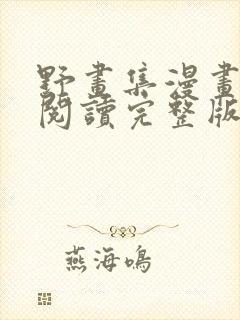 野畫集漫畫
閱讀完整版
燕海鳴